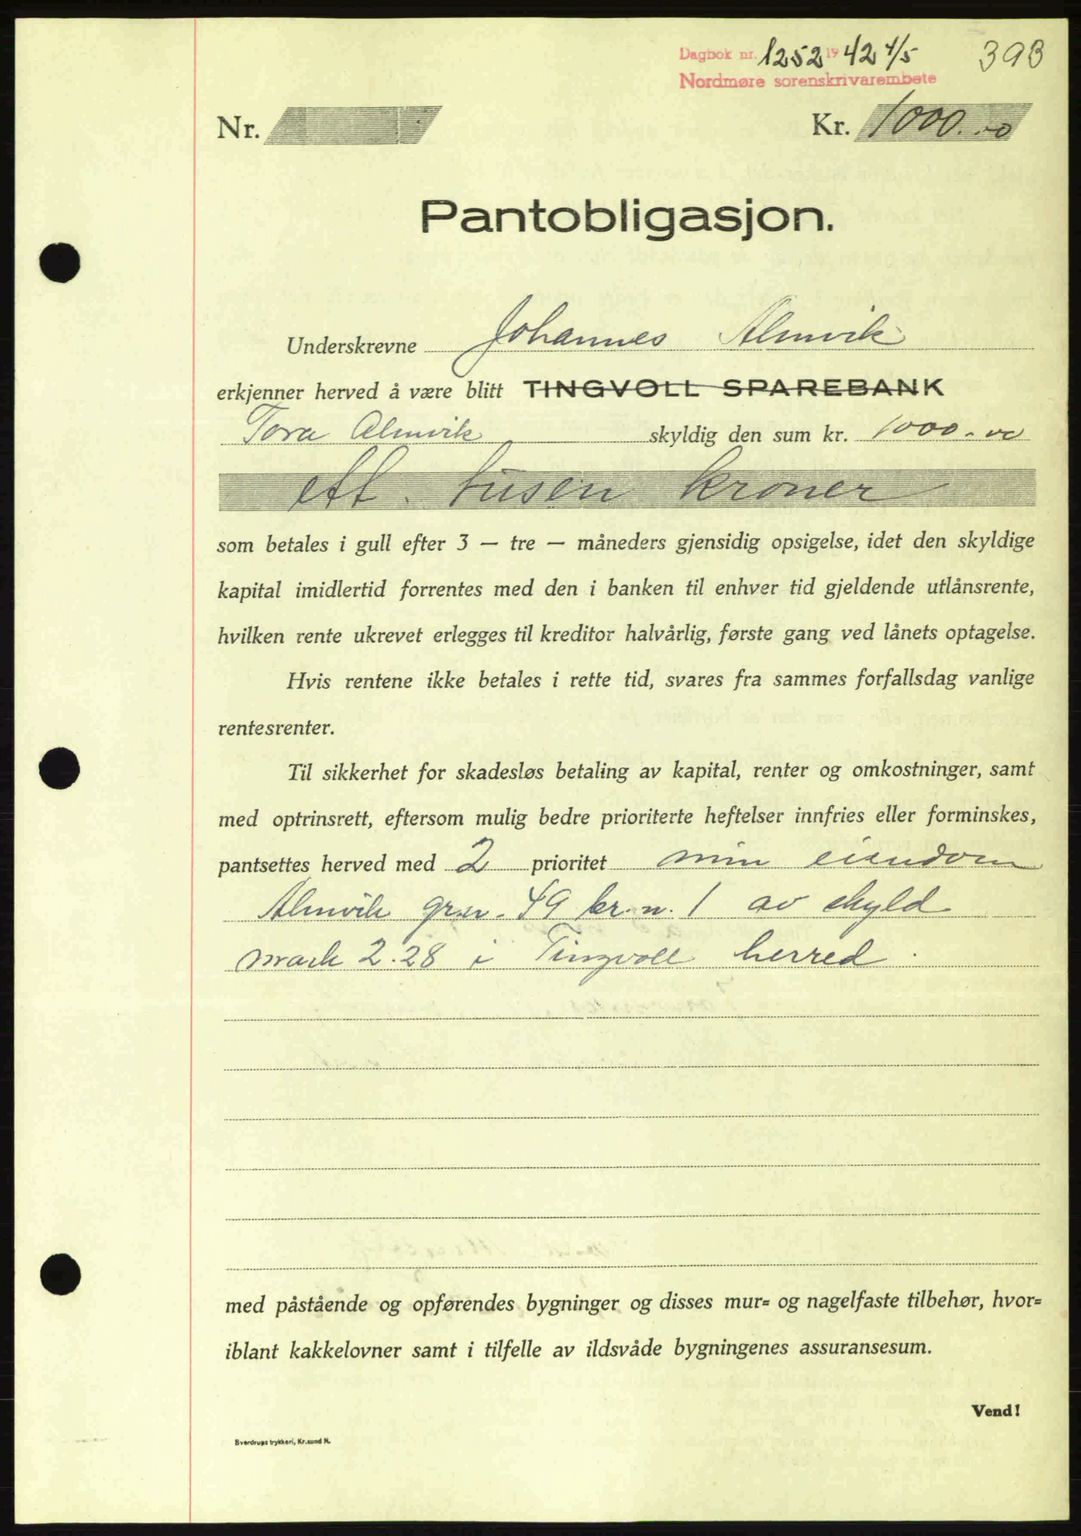 Dagbok nr. 1252 1942 4/5 393
Nordmøre sorenskrivarembete
Nr. Kr. 1000.00
Pantobligasjon.
Underskrevne Johannes Almvik
erkjenner herved å være blitt TINGVOLL SPAREBANK
Tora Almvik skyldig den sum kr. 1000.00
ett tusen kroner
som betales i gull efter 3 — tre — måneders gjensidig opsigelse, idet den skyldige
kapital imidlertid forrentes med den i banken til enhver tid gjeldende utlånsrente,
hvilken rente ukrevet erlegges til kreditor halvårlig, første gang ved lånets optagelse.
Hvis rentene ikke betales i rette tid, svares fra sammes forfallsdag vanlige
rentesrenter.
Til sikkerhet for skadesløs betaling av kapital, renter og omkostninger, samt
med optrinsrett, eftersom mulig bedre prioriterte heftelser innfries eller forminskes,
pantsettes herved med 2 prioritet min eiendom
Almvik gr.nr. 49 br.n. 1 av skyld
mark 2.28 i Tingvoll herred.
med påstående og opførendes bygninger og disses mur= og nagelfaste tilbehør, hvor=
iblant kakkelovner samt i tilfelle av ildsvåde bygningenes assuransesum.
Vend!
Sverdrups trykkeri, Kr.sund N.